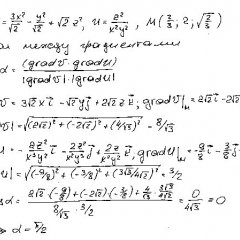 = 3x²/√2 - y²/√2 + √2 z², u = z²/x²y², M(2/3; 2; √(2/3))
между градиентами
α = (grad v · grad u) / |grad v|·|grad u|
v = 3√2 x i - √2 y j + 2√2 z k; grad v|ₘ = 2√2 i - 2√2
v| = √((2√2)² + (-2√2)² + (4/√3)²) = 8/√3
u = - 2z²/x³y² i - 2z²/x²y³ j + 2z/x²y² k; grad u|ₘ = -9/8 i - 3/8
u| = √((-9/8)² + (-3/8)² + (3√3/4√2)²) = 3/2
α = (2√2·(-9/8) + (-2√2)(-3/8) + 4/√3 · 3√3/4√2) / (8/√3 · 3/2) = 0/4√3 = 0
α = π/2